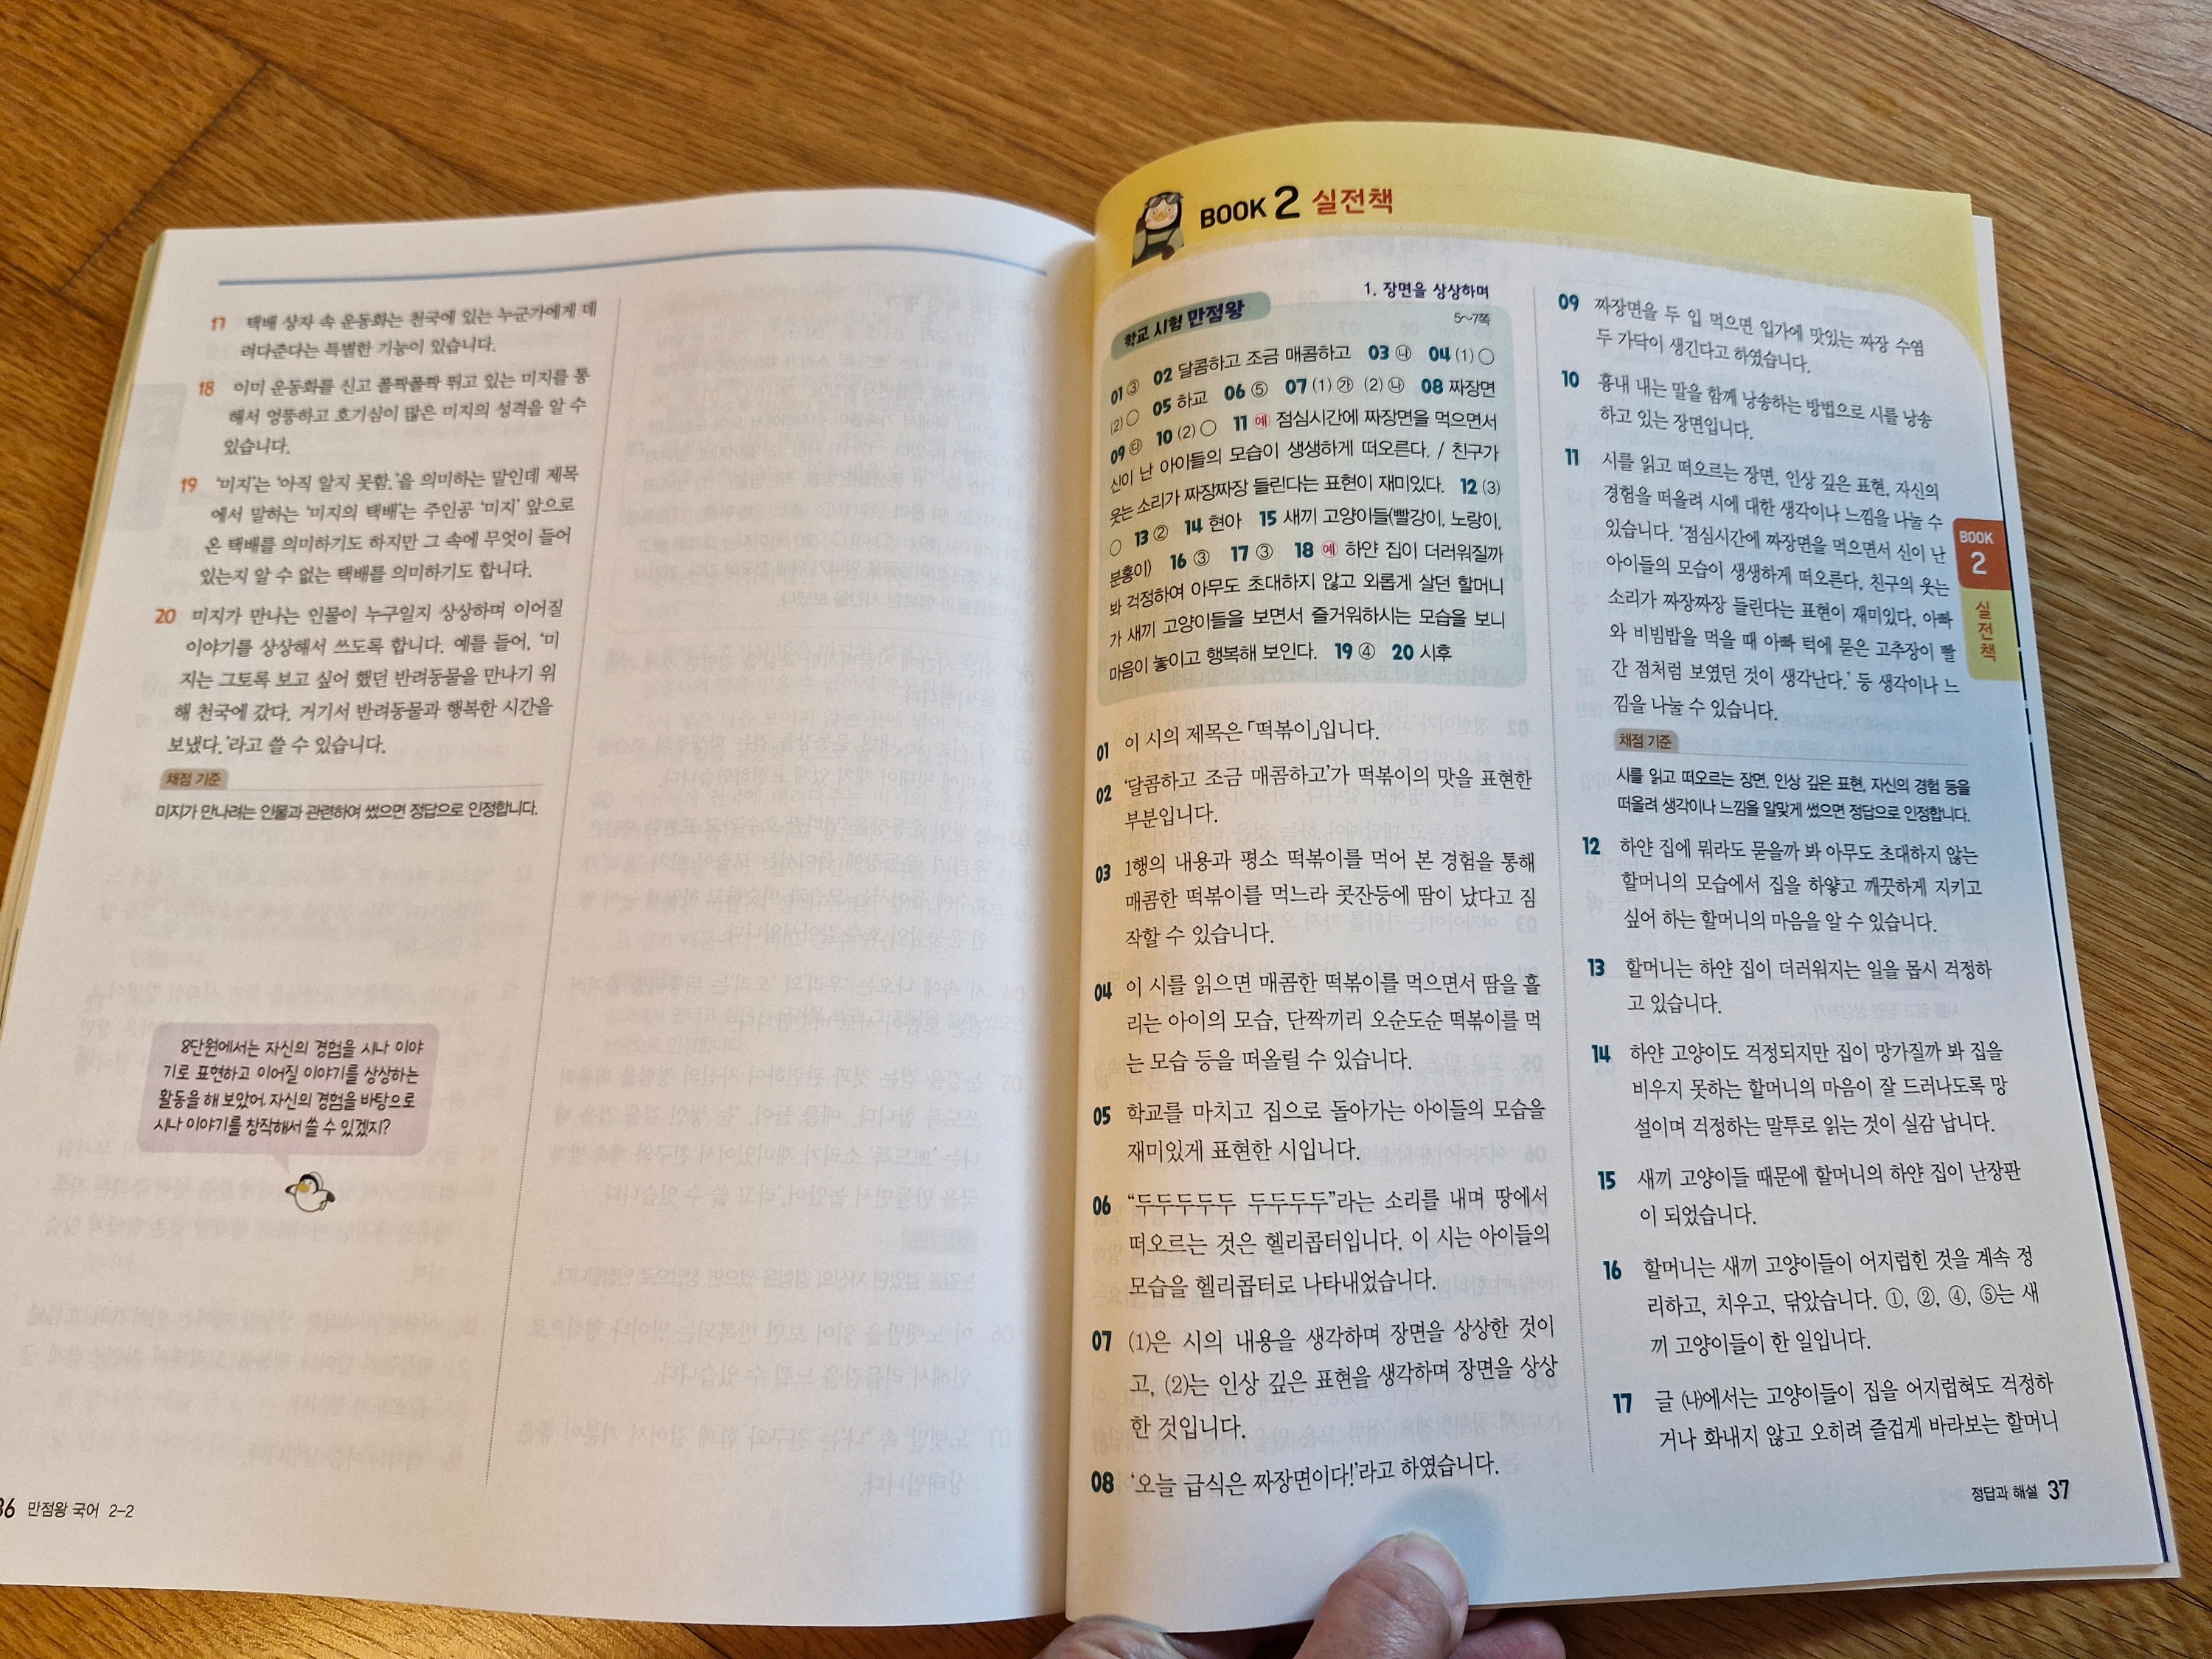 17 택배 상자 속 운동화는 천국에 있는 누군가에게 데
려다준다는 특별한 기능이 있습니다.
18 이미 운동화를 신고 폴짝폴짝 뛰고 있는 미지를 통
해서 엉뚱하고 호기심이 많은 미지의 성격을 알 수
있습니다.
19 ‘미지’는 ‘아직 알지 못함.’을 의미하는 말인데 제목
에서 말하는 ‘미지의 택배’는 주인공 ‘미지’ 앞으로
온 택배를 의미하기도 하지만 그 속에 무엇이 들어
있는지 알 수 없는 택배를 의미하기도 합니다.
20 미지가 만나는 인물이 누구일지 상상하며 이어질
이야기를 상상해서 쓰도록 합니다. 예를 들어, ‘미
지는 그토록 보고 싶어 했던 반려동물을 만나기 위
해 천국에 갔다. 거기서 반려동물과 행복한 시간을
보냈다.’라고 쓸 수 있습니다.
채점 기준
미지가 만나려는 인물과 관련하여 썼으면 정답으로 인정합니다.
8단원에서는 자신의 경험을 시나 이야
기로 표현하고 이어질 이야기를 상상하는
활동을 해 보았어. 자신의 경험을 바탕으로
시나 이야기를 창작해서 쓸 수 있겠지?
36 만점왕 국어 2-2
BOOK 2 실전책
1. 장면을 상상하며
학교 시험 만점왕
5~7쪽
01 ③ 02 달콤하고 조금 매콤하고 03 ㉯ 04 (1) ○
(2) ○ 05 하교 06 ⑤ 07 (1) ㉮ (2) ㉯ 08 짜장면
09 ㉰ 10 (2) ○ 11 예 점심시간에 짜장면을 먹으면서
신이 난 아이들의 모습이 생생하게 떠오른다. / 친구가
웃는 소리가 짜장짜장 들린다는 표현이 재미있다. 12 (3)
○ 13 ② 14 현아 15 새끼 고양이들(빨강이, 노랑이,
분홍이) 16 ③ 17 ③ 18 예 하얀 집이 더러워질까
봐 걱정하여 아무도 초대하지 않고 외롭게 살던 할머니
가 새끼 고양이들을 보면서 즐거워하시는 모습을 보니
마음이 놓이고 행복해 보인다. 19 ④ 20 시후
01 이 시의 제목은 「떡볶이」입니다.
02 ‘달콤하고 조금 매콤하고’가 떡볶이의 맛을 표현한
부분입니다.
03 1행의 내용과 평소 떡볶이를 먹어 본 경험을 통해
매콤한 떡볶이를 먹느라 콧잔등에 땀이 났다고 짐
작할 수 있습니다.
04 이 시를 읽으면 매콤한 떡볶이를 먹으면서 땀을 흘
리는 아이의 모습, 단짝끼리 오순도순 떡볶이를 먹
는 모습 등을 떠올릴 수 있습니다.
05 학교를 마치고 집으로 돌아가는 아이들의 모습을
재미있게 표현한 시입니다.
06 “두두두두두 두두두두”라는 소리를 내며 땅에서
떠오르는 것은 헬리콥터입니다. 이 시는 아이들의
모습을 헬리콥터로 나타내었습니다.
07 (1)은 시의 내용을 생각하며 장면을 상상한 것이
고, (2)는 인상 깊은 표현을 생각하며 장면을 상상
한 것입니다.
08 ‘오늘 급식은 짜장면이다!’라고 하였습니다.
09 짜장면을 두 입 먹으면 입가에 맛있는 짜장 수염
두 가닥이 생긴다고 하였습니다.
10 흉내 내는 말을 함께 낭송하는 방법으로 시를 낭송
하고 있는 장면입니다.
11 시를 읽고 떠오르는 장면, 인상 깊은 표현, 자신의
경험을 떠올려 시에 대한 생각이나 느낌을 나눌 수
있습니다. ‘점심시간에 짜장면을 먹으면서 신이 난
아이들의 모습이 생생하게 떠오른다, 친구의 웃는
소리가 짜장짜장 들린다는 표현이 재미있다, 아빠
와 비빔밥을 먹을 때 아빠 턱에 묻은 고추장이 빨
간 점처럼 보였던 것이 생각난다.’ 등 생각이나 느
낌을 나눌 수 있습니다.
채점 기준
시를 읽고 떠오르는 장면, 인상 깊은 표현, 자신의 경험 등을
떠올려 생각이나 느낌을 알맞게 썼으면 정답으로 인정합니다.
12 하얀 집에 뭐라도 묻을까 봐 아무도 초대하지 않는
할머니의 모습에서 집을 하얗고 깨끗하게 지키고
싶어 하는 할머니의 마음을 알 수 있습니다.
13 할머니는 하얀 집이 더러워지는 일을 몹시 걱정하
고 있습니다.
14 하얀 고양이도 걱정되지만 집이 망가질까 봐 집을
비우지 못하는 할머니의 마음이 잘 드러나도록 망
설이며 걱정하는 말투로 읽는 것이 실감 납니다.
15 새끼 고양이들 때문에 할머니의 하얀 집이 난장판
이 되었습니다.
16 할머니는 새끼 고양이들이 어지럽힌 것을 계속 정
리하고, 치우고, 닦았습니다. ①, ②, ④, ⑤는 새
끼 고양이들이 한 일입니다.
17 글 ㈏에서는 고양이들이 집을 어지럽혀도 걱정하
거나 화내지 않고 오히려 즐겁게 바라보는 할머니
BOOK
2
실전책
정답과 해설 37